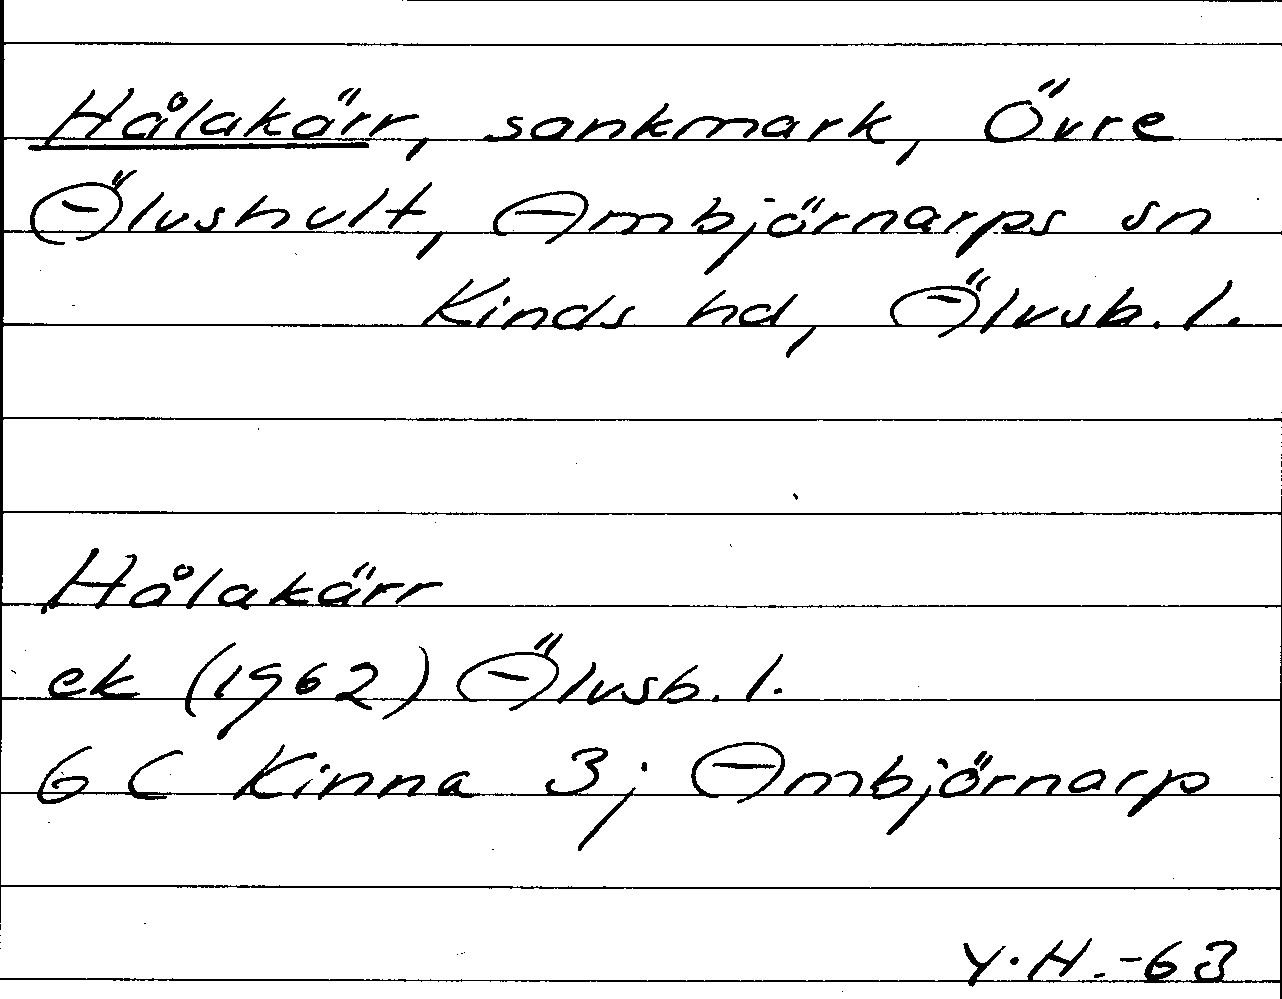 Hålakärr, sankmark, Övre
Älvshult, Ambjörnarps sn
Kinds hd, Älvsb. l.
Hålakärr
ek (1962) Älvsb. l.
6 C Kinna 3j Ambjörnarp
Y.H.-63